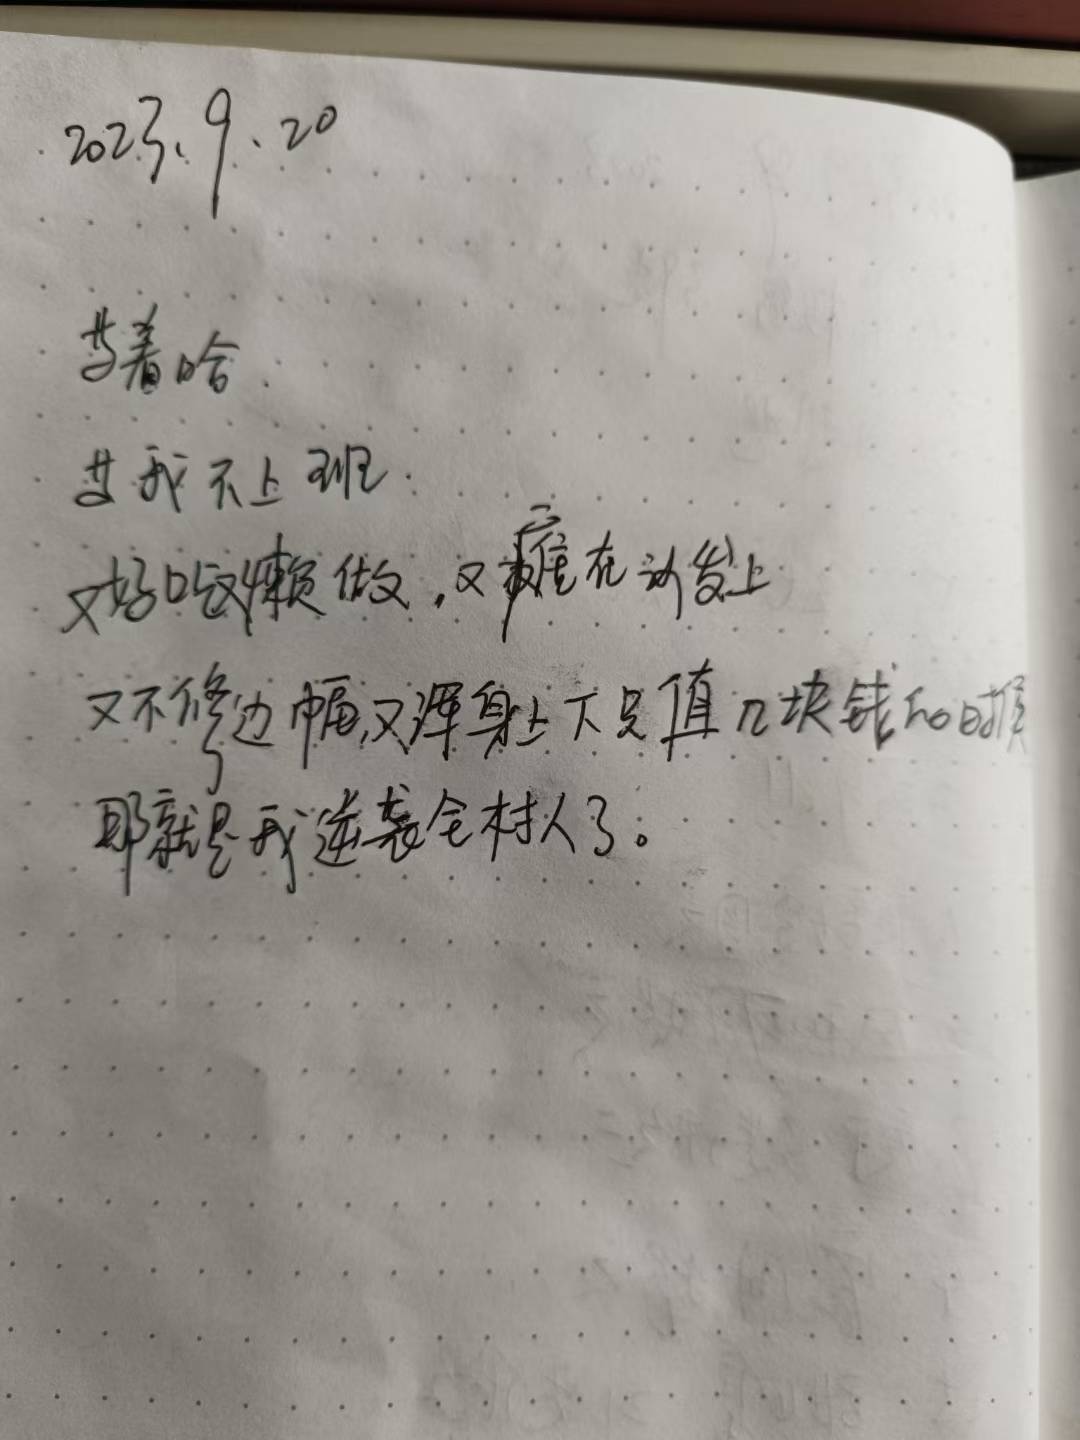 2023.9.20
等着哈
等我不上班
又好吃懒做,又瘫在沙发上
又不修边幅,又浑身上下只值几块钱的时候
那就是我逆袭全村人了。